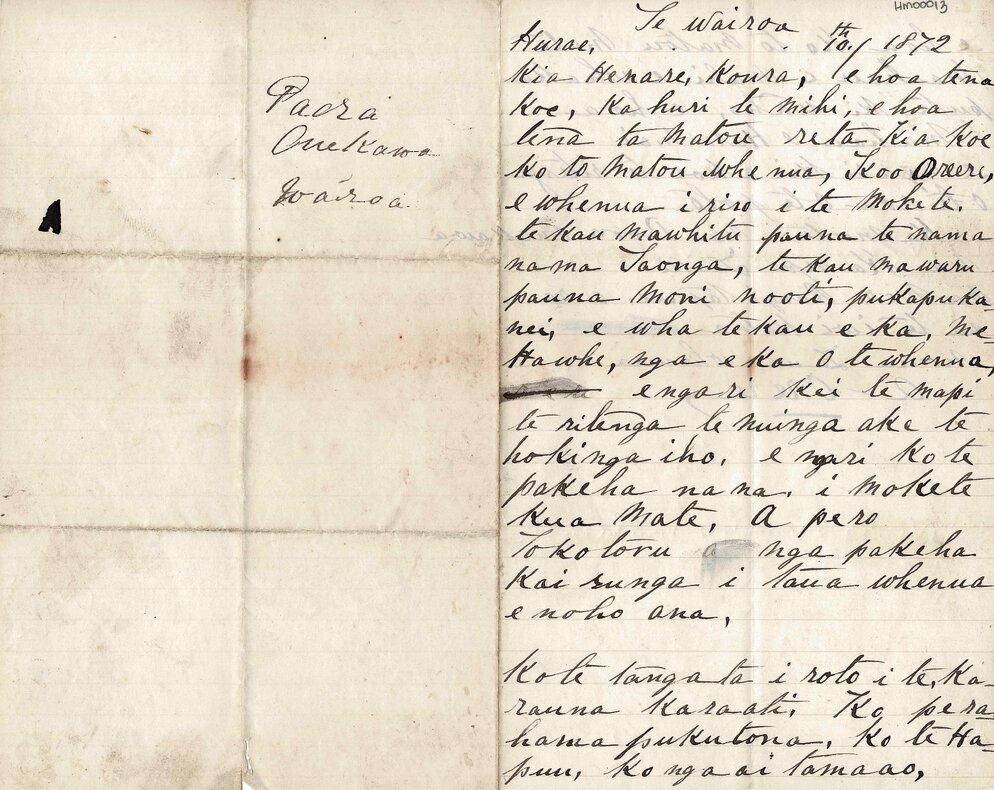 HM00013
Te Wairoa
Hurae, 10th/ 1872
Kia Henare, Koura, e hoa tena
koe, ka huri te mihi, e hoa
tena ta matou reta kia koe
ko to matou whenua, Koo Oreere,
e whenua i riro i te Mokete.
te kau mawhitu pauna te nama
nama Taonga, te kau mawaru
pauna moni nooti, pukapuka
nei, e wha te kau e ka, me-
Hawhe, nga e ka o te whenua,
engari kei te mapi
te ritenga te nuinga ake te
hokinga iho, e ngari ko te
pakeha na na. i mokete
kua mate, A pero
Tokotoru a nga pakeha
kai runga i taua whenua
e noho ana,
ko te tangata i roto i te, Ka-
rauna karaati. Ko pera-
hama pukutona, ko te Ha-
puu, ko nga ai tamaao,
Paora
Onekawa
Wairoa